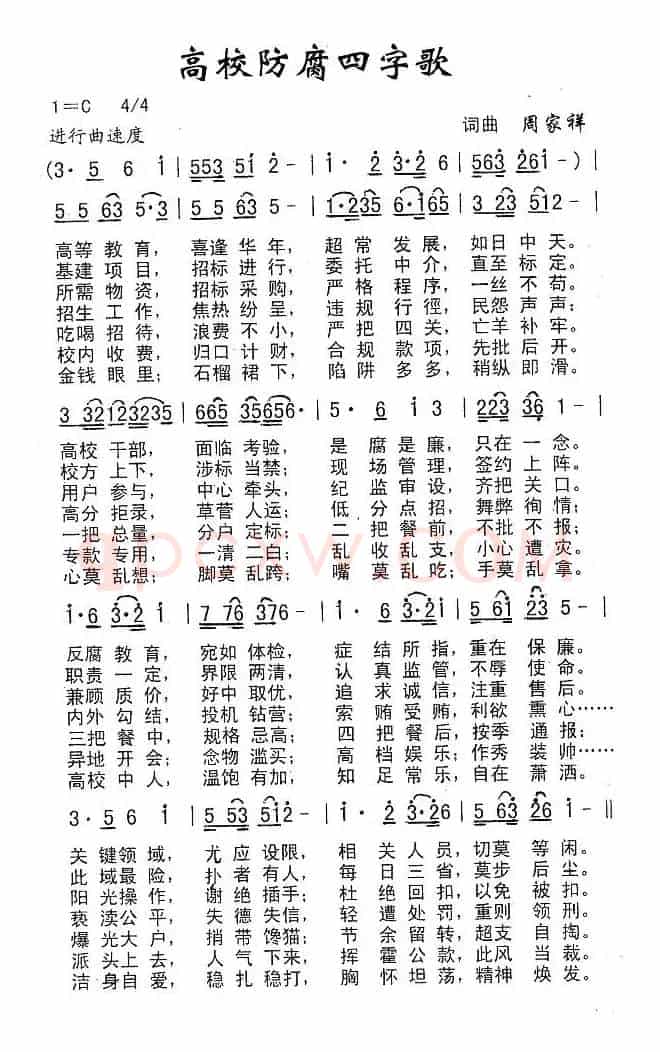 高校防腐四字歌
1=C 4/4
进行曲速度
词曲 周家祥
(3· 5 6 i | 553 5i 2 - | i · 2 3·2 6 | 563 26i - ) |
5 5 63 5·3 | 5 5 63 5 - | 1·235 6·i65 | 3 23 512 - |
高等 教育, 喜逢 华年, 超常 发展, 如日 中天。
基建 项目, 招标 进行, 委托 中介, 直至 标定。
所需 物资, 招标 采购, 严格 程序, 一丝 不苟。
招生 工作, 焦热 纷呈, 违规 行徑, 民怨 声声;
吃喝 招待, 浪费 不小, 严把 四关, 亡羊 补牢。
校内 收费, 归口 计财, 合规 款项, 先批 后开。
金钱 眼里; 石榴 裙下, 陷阱 多多, 稍纵 即滑。
3 32123235 | 665 35656· | 5 · 6 i 3 | 223 36 1 - |
高校 干部, 面临 考验, 是腐是廉, 只在 一念。
校方 上下, 涉标 当禁; 现场管理, 签约 上阵。
用户 参与, 中心 牵头, 纪监审设, 齐把 关口。
高分 拒录, 草菅 人运; 低分点招, 舞弊 徇情;
一把 总量, 分户 定标; 二把餐前, 不批 不报;
专款 专用, 一清 二白; 乱收乱支, 小心 遭灾。
心莫 乱想; 脚莫 乱跨; 嘴莫乱吃; 手莫 乱拿。
i · 6 3·2 i | 7 76 376 - | i · 6 3·2i | 5 6i 23 5 - |
反腐 教育, 宛如 体检, 症结所指, 重在 保廉。
职责 一定, 界限 两清, 认真监管, 不辱 使命。
兼顾 质价, 好中 取优, 追求诚信, 注重 售后。
内外 勾结, 投机 钻营; 索贿受贿, 利欲 熏心……
三把 餐中, 规格 忌高; 四把餐后, 按季 通报;
异地 开会; 念物 滥买; 高档娱乐; 作秀 装帅……
高校 中人, 温饱 有加, 知足常乐, 自在 萧洒。
3 · 5 6 i | 5 53 5i2 - | i · 2 3·26 | 5 63 26 i - ||
关键领域, 尤应 设限, 相关 人员, 切莫 等闲。
此域最险, 扑者 有人, 每日 三省, 莫步 后尘。
阳光操作, 谢绝 插手; 杜绝 回扣, 以免 被扣。
亵渎公平, 失德 失信, 轻遭 处罚, 重则 领刑。
爆光大户, 捎带 馋猫; 节余 留转, 超支 自掏。
派头上去, 人气 下来, 挥霍 公款, 此风 当裁。
洁身自爱, 稳扎 稳打, 胸怀 坦荡, 精神 焕发。